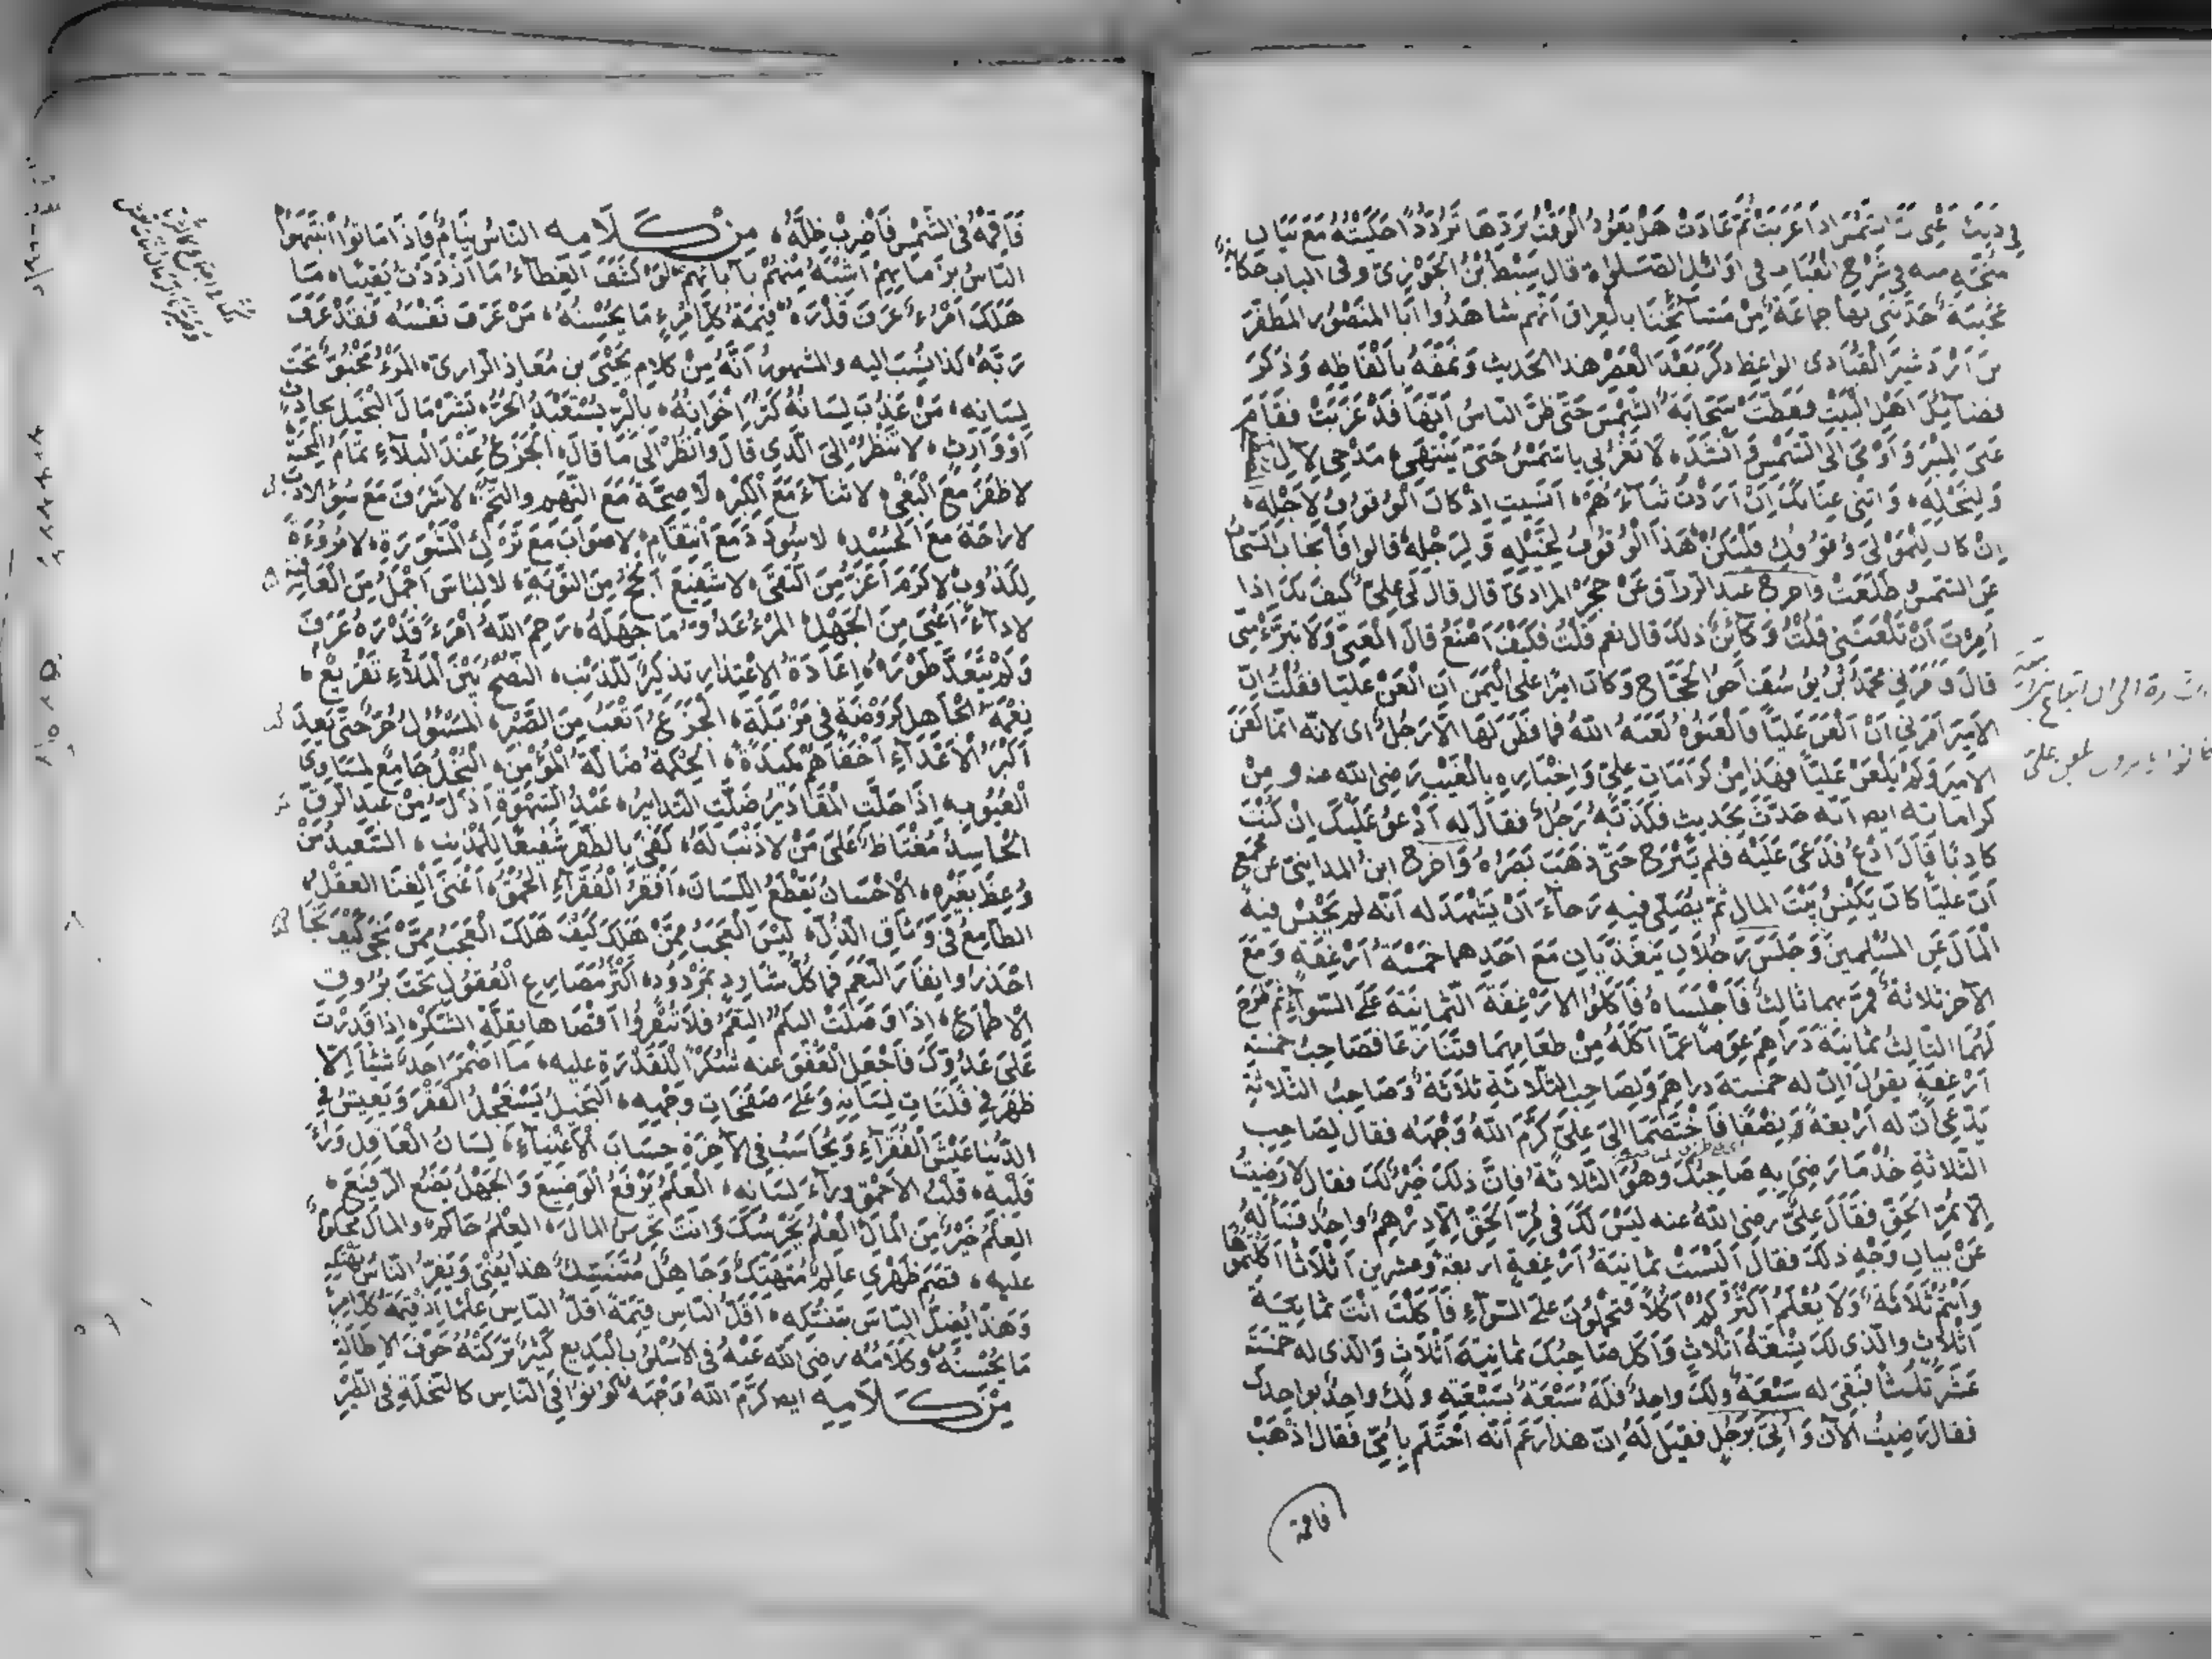 في حديث غيرت الشمس اذا غربت ثم عادت هل يعود الوقت بردها تردد حكيته مع بيان
متجه منه في شرح العباب في اوائل الصلوة قال سبط بن الجوزي وفي الباب حكاية
عجيبة حدثني بها جماعة من مشايخنا بالعراق انهم شاهدوا ابا المنصور المظفر
بن اردشير القبادى الواعظ ذكر بعد العصر هذا الحديث ونمقه بالفاظه وذكر
فضائل اهل البيت فغطت سحابة الشمس حتى ظن الناس انها قد غربت فقام
على المنبر واومى الى الشمس وانشده لا تغربي يا شمس حتى ينتهي مدحي لآل المصطفى
ولنجله واثني عنانك ان اردت ثناءهم انسيت اذ كان الوقوف لاجله
ان كان للمولى وقوفك فليكن هذا الوقوف لخيله ولرجله قالوا فانجاب السحاب
عن الشمس طلعت واخرج عبد الرزاق عن حجر المرادى قال قال لى علي كيف بك اذا
امرت ان تلعنني قلت وكائن ذلك قال نعم قلت فكيف اصنع قال العني ولا تبرء مني
قال فامرني محمد بن يوسف اخو الحجاج وكان اميرا على اليمن ان العن عليا فقلت ان
الامير امرني ان العن عليا فالعنوه لعنه الله فما فطن لها الا رجل اى لانه انما لعن
الامير ولم يلعن عليا فهذا من كرامات علي واخباره بالغيب رضى الله عنه ومن
كراماته ايض انه حدث بحديث فكذبه رجل فقال له ادعو عليك ان كنت
كاذبا قال ادع فدعى عليه فلم يبرح حتى ذهب بصره واخرج ابن المدايني عن مجمع
ان عليا كان يكنس بيت المال ثم يصلى فيه رجاء ان يشهد له انه لم يحبس فيه
المال عن المسلمين وجلس رجلان يتغذيان مع احدهما خمسة ارغفة ومع
الآخر ثلاثة فمر بهما ثالث فاجلساه فاكلوا الارغفة الثمانية على السواء ثم طرح
لهما الثالث ثمانية دراهم عوضا عما اكله من طعامهما فتنازعا فصاحب خمسة
ارغفة يقول ان له خمسة دراهم ولصاحب الثلاثة ثلاثة وصاحب الثلاثة
يدعى ان له اربعة ونصفا فاختصما الى علي كرم الله وجهه فقال لصاحب
الثلاثة خذ ما رضى به صاحبك وهو الثلاثة فان ذلك خير لك فقال لا رضيت
الا بمر الحق فقال علي رضى الله عنه ليس لك في مر الحق الا درهم واحد فسأله
عن بيان وجه ذلك فقال اليست ثمانية ارغفة اربعة وعشرين اثلاثا اكلتموها
وانتم ثلاثة ولا يعلم اكثركم اكلا فتحملون على السواء فاكلت انت ثمانية
اثلاث والذى لك تسعة اثلاث واكل صاحبك ثمانية اثلاث والذى له خمسة
عشر ثلثا فبقى له سبعة ولك واحد فله سبعة بسبعته ولك واحد بواحدك
فقال رضيت الآن واتى برجل فقيل له ان هذا زعم انه احتلم بامي فقال اذهب
فاقمه
فاقمه في الشمس فاضرب ظله من كلامه الناس نيام فاذا ماتوا انتبهوا
الناس بزمانهم اشبه منهم بآبائهم لو كشف الغطاء ما ازددت يقينا ما
هلك امرء عرف قدره قيمة كل امرئ ما يحسنه من عرف نفسه فقد عرف
ربه كذا نسب اليه والمشهور انه من كلام يحيى بن معاذ الرازى المرء مخبو تحت
لسانه من عذب لسانه كثر اخوانه بالبر يستعبد الحر بشر مال البخيل بحادث
او وارث لا تنظر الى الذي قال وانظر الى ما قال الجزع عند البلاء تمام المحنة
لا ظفر مع البغي لا ثناء مع الكبر لا صحة مع النهم والتخم لا شرف مع سوء الادب
لا راحة مع الحسد لا سودد مع انتقام لا صواب مع ترك المشورة لا مروءة
لكذوب لا كرم اعز من التقى لا شفيع انجح من التوبة لا لباس اجمل من العافية
لا داء اعيى من الجهل المرء عدو ما جهله رحم الله امرء قدره عرف
ولم يتعد طوره اعادة الاعتذار تذكير للذنب النصح بين الملاء تقريع
نعمة الجاهل كروضة في مزبلة الجزع اتعب من الصبر المسئول حر حتى يعد
اكبر الاعداء اخفاهم مكيدة الحكمة ضالة المؤمن البخل جامع لمساوى
العيوب اذا حلت المقادير ضلت التدابير عبد الشهوة اذل من عبد الرق
الحاسد مغتاظ على من لا ذنب له كفى بالظفر شفيعا للمذنب السعيد من
وعظ بغيره الاحسان يقطع اللسان افقر الفقراء الحمق اغنى الغنا العقل
الطامع في وثاق الذل ليس العجب ممن هلك كيف هلك العجب ممن نجى كيف نجا
احذروا نفار النعم فما كل شارد بمردود اكثر مصارع العقول تحت بروق
الاطماع اذا وصلت اليكم النعم فلا تنفروا اقصاها بقلة الشكر اذا قدرت
على عدوك فاجعل العفو عنه شكرا للقدرة عليه ما اضمر احد شيئا الا
ظهر في فلتات لسانه وعلى صفحات وجهه البخيل يستعجل الفقر ويعيش في
الدنيا عيش الفقراء ويحاسب في الآخرة حساب الاغنياء لسان العاقل وراء
قلبه قلب الاحمق وراء لسانه العلم يرفع الوضيع والجهل يضع الرفيع
العلم خير من المال العلم يحرسك وانت تحرس المال العلم حاكم والمال محكوم
عليه قصم ظهري عالم متهتك وجاهل متنسك هذا يفتى ويفر الناس بتهتكه
وهذا يضل الناس بتنسكه اقل الناس قيمة اقل الناس علما اذ قيمة كل امرئ
ما يحسنه وكلامه رضى الله عنه في الاسلوب البديع كثير تركته خوف الاطالة
من كلامه ايض كرم الله وجهه كونوا في الناس كالنحلة في الطير